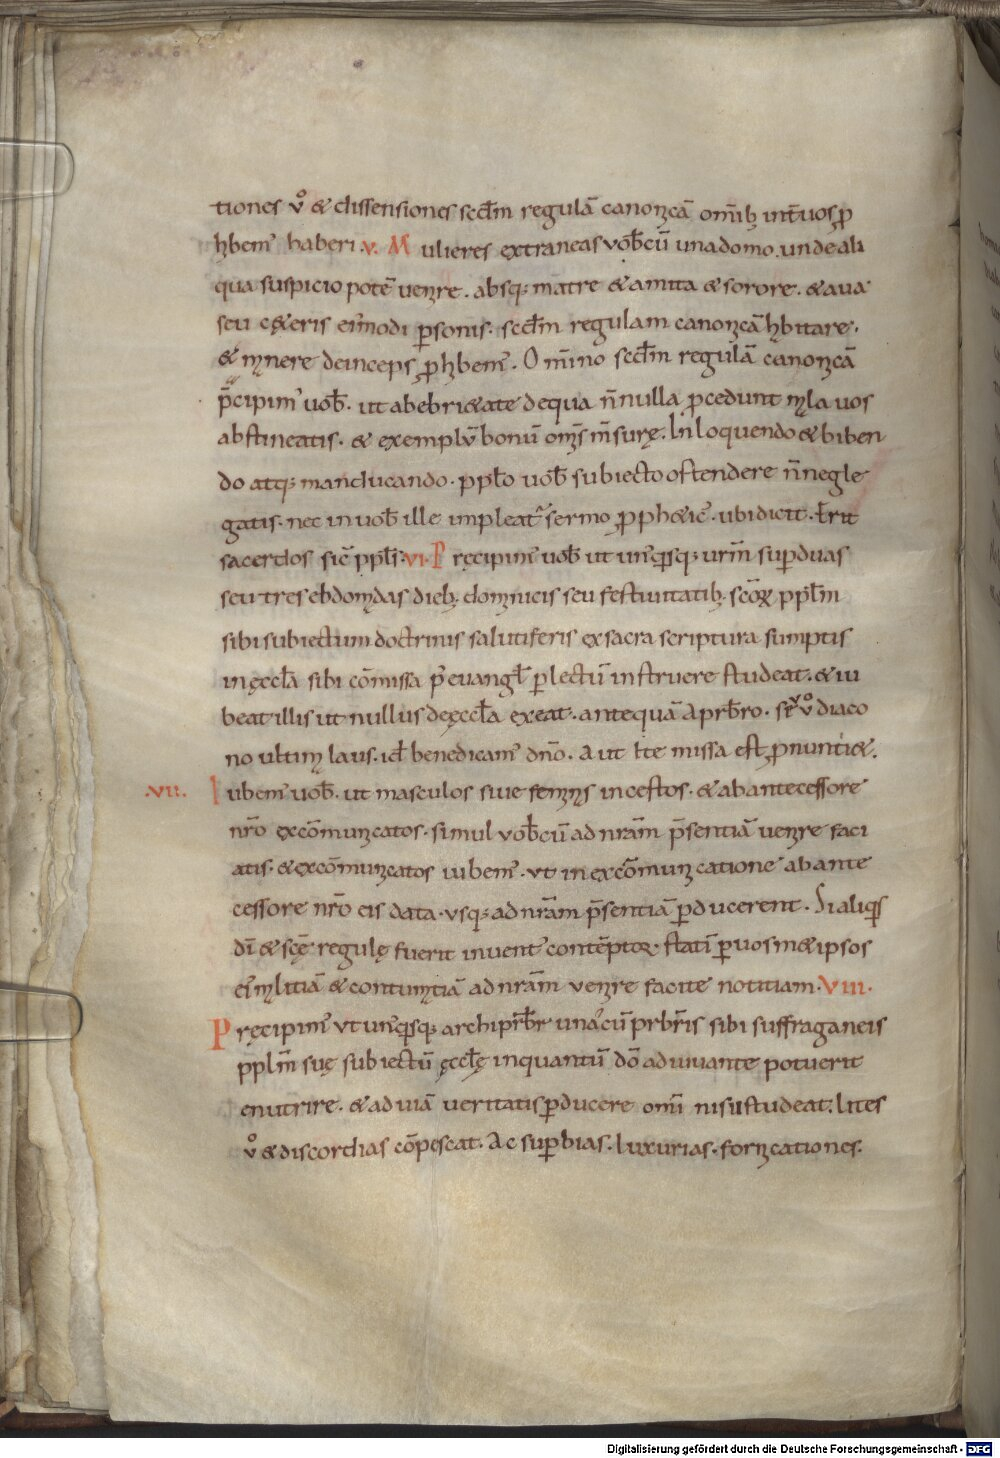 tiones v̊ & dissensiones scd̄m regulā canonicā omīb; int̄ uos p̱
hibem᾽ haberi .V. Mulieres extraneas vob̄cū una domo. unde ali
qua suspicio potē uenire. absq; matre & amita & sorore. & aua
seu c&eris ei᾽modi p̱sonis. scd̄m regulam canonicā habitare.
& manere deinceps p̱hibem᾽. Omnino scd̄m regulā canonicā
p̄cipim᾽ uob̄. ut ab ebri&ate de qua n̄nulla p̱cedunt mala uos
abstineatis. & exemplū bonū om̄s m̄surę. In loquendo & biben
do atq; manducando. pplō uob̄ subiecto ostendere n̄ negle
gatis. nec in uob̄ ille impleat᾽ sermo p̱ph&ic᾽. ubi dicit. Erit
sacerdos sic̄ ppl̄s. VI. Pręcipim᾽ uob̄ ut un᾽q̱sq; ur̄m sup̱ duas
seu tres ebdomadas dieb; dominicis seu festiuitatib; sc̄oꝝ ppl̄m
sibi subiectum doctrinis salutiferis ex sacra scriptura sumptis
in ęccl̄a sibi cōmissa p᾽ euangl̄ p̱lectū instruere studeat. & iu
beat illis ut nullus de ęccl̄a exeat. antequā a pr̄bro. s̄ v̊ diaco
no ultima laus. id̄ benedicam᾽ dn̄o. Aut Ite missa est p̱nunti&.
.VII. Iubem᾽ uob̄. ut masculos siue feminas incestos. & ab antecessore
nr̄o excōmunicatos. simul vob̄cū ad nr̄am p̄sentiā uenire faci
atis. & excōmunicatos iubem᾽. vt in excōmunicatione ab ante
cessore nr̄o eis data. vsq; ad nr̄am p̄sentiā p̱ducerent. Si aliq̱s
dī & scę̄ regulę fuerit inuent᾽ contēptor. statī p̱ uos m&ipsos
ei᾽ malitiā & contumatiā ad nr̄am venire facite notitiam. VIII.
Pręcipim᾽ vt un᾽q̱sq; archipr̄br unā cū pr̄bris sibi suffraganeis
ppl̄m suę subiectū ęccl̄ę inquantū dō adiuuante potuerit
enutrire. & ad uiā ueritatis p̱ducere omī nisu studeat. Lites
v̊ & discordias cōpescat. Ac sup̱bias. luxurias. fornicationes.
Digitalisierung gefördert durch die Deutsche Forschungsgemeinschaft - DFG